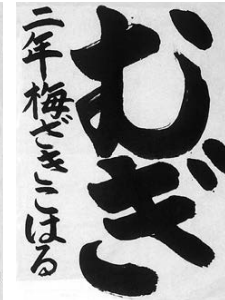 むぎ
二年梅ざきこはる